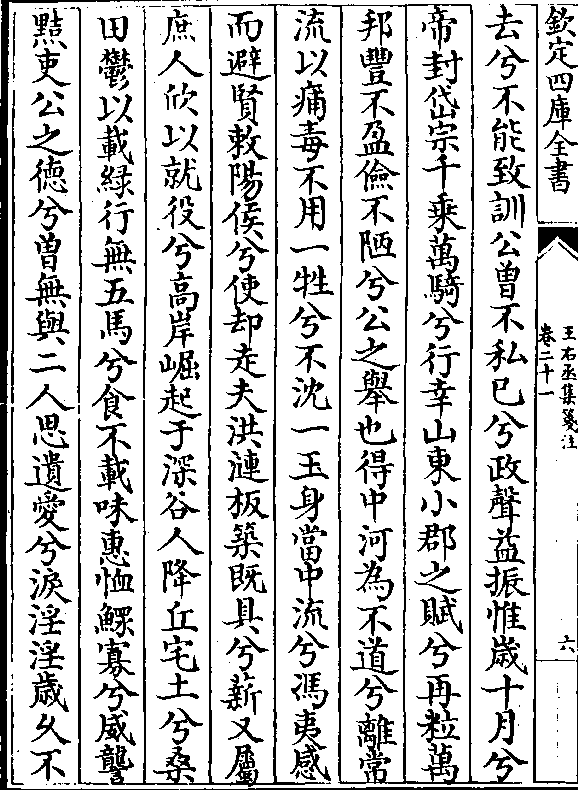 欽定四庫全書
王右丞集箋注
卷二十一
六
去兮不能致訓公曽不私已兮政聲益振惟歲十月兮
帝封岱宗千乗萬騎兮行幸山東小郡之賦兮再粒萬
邦豐不盈儉不陋兮公之舉也得中河為不道兮離常
流以痡毒不用一牲兮不沈一玉身當中流兮馮夷感
而避賢敕陽侯兮使却走夫洪漣板築既具兮薪又屬
庶人欣以就役兮高岸崛起于深谷人降丘宅土兮桑
田鬱以載緑行無五馬兮食不載味惠恤鰥寡兮威讋
黠吏公之徳兮曽無與二人思遺愛兮淚淫淫歲乆不